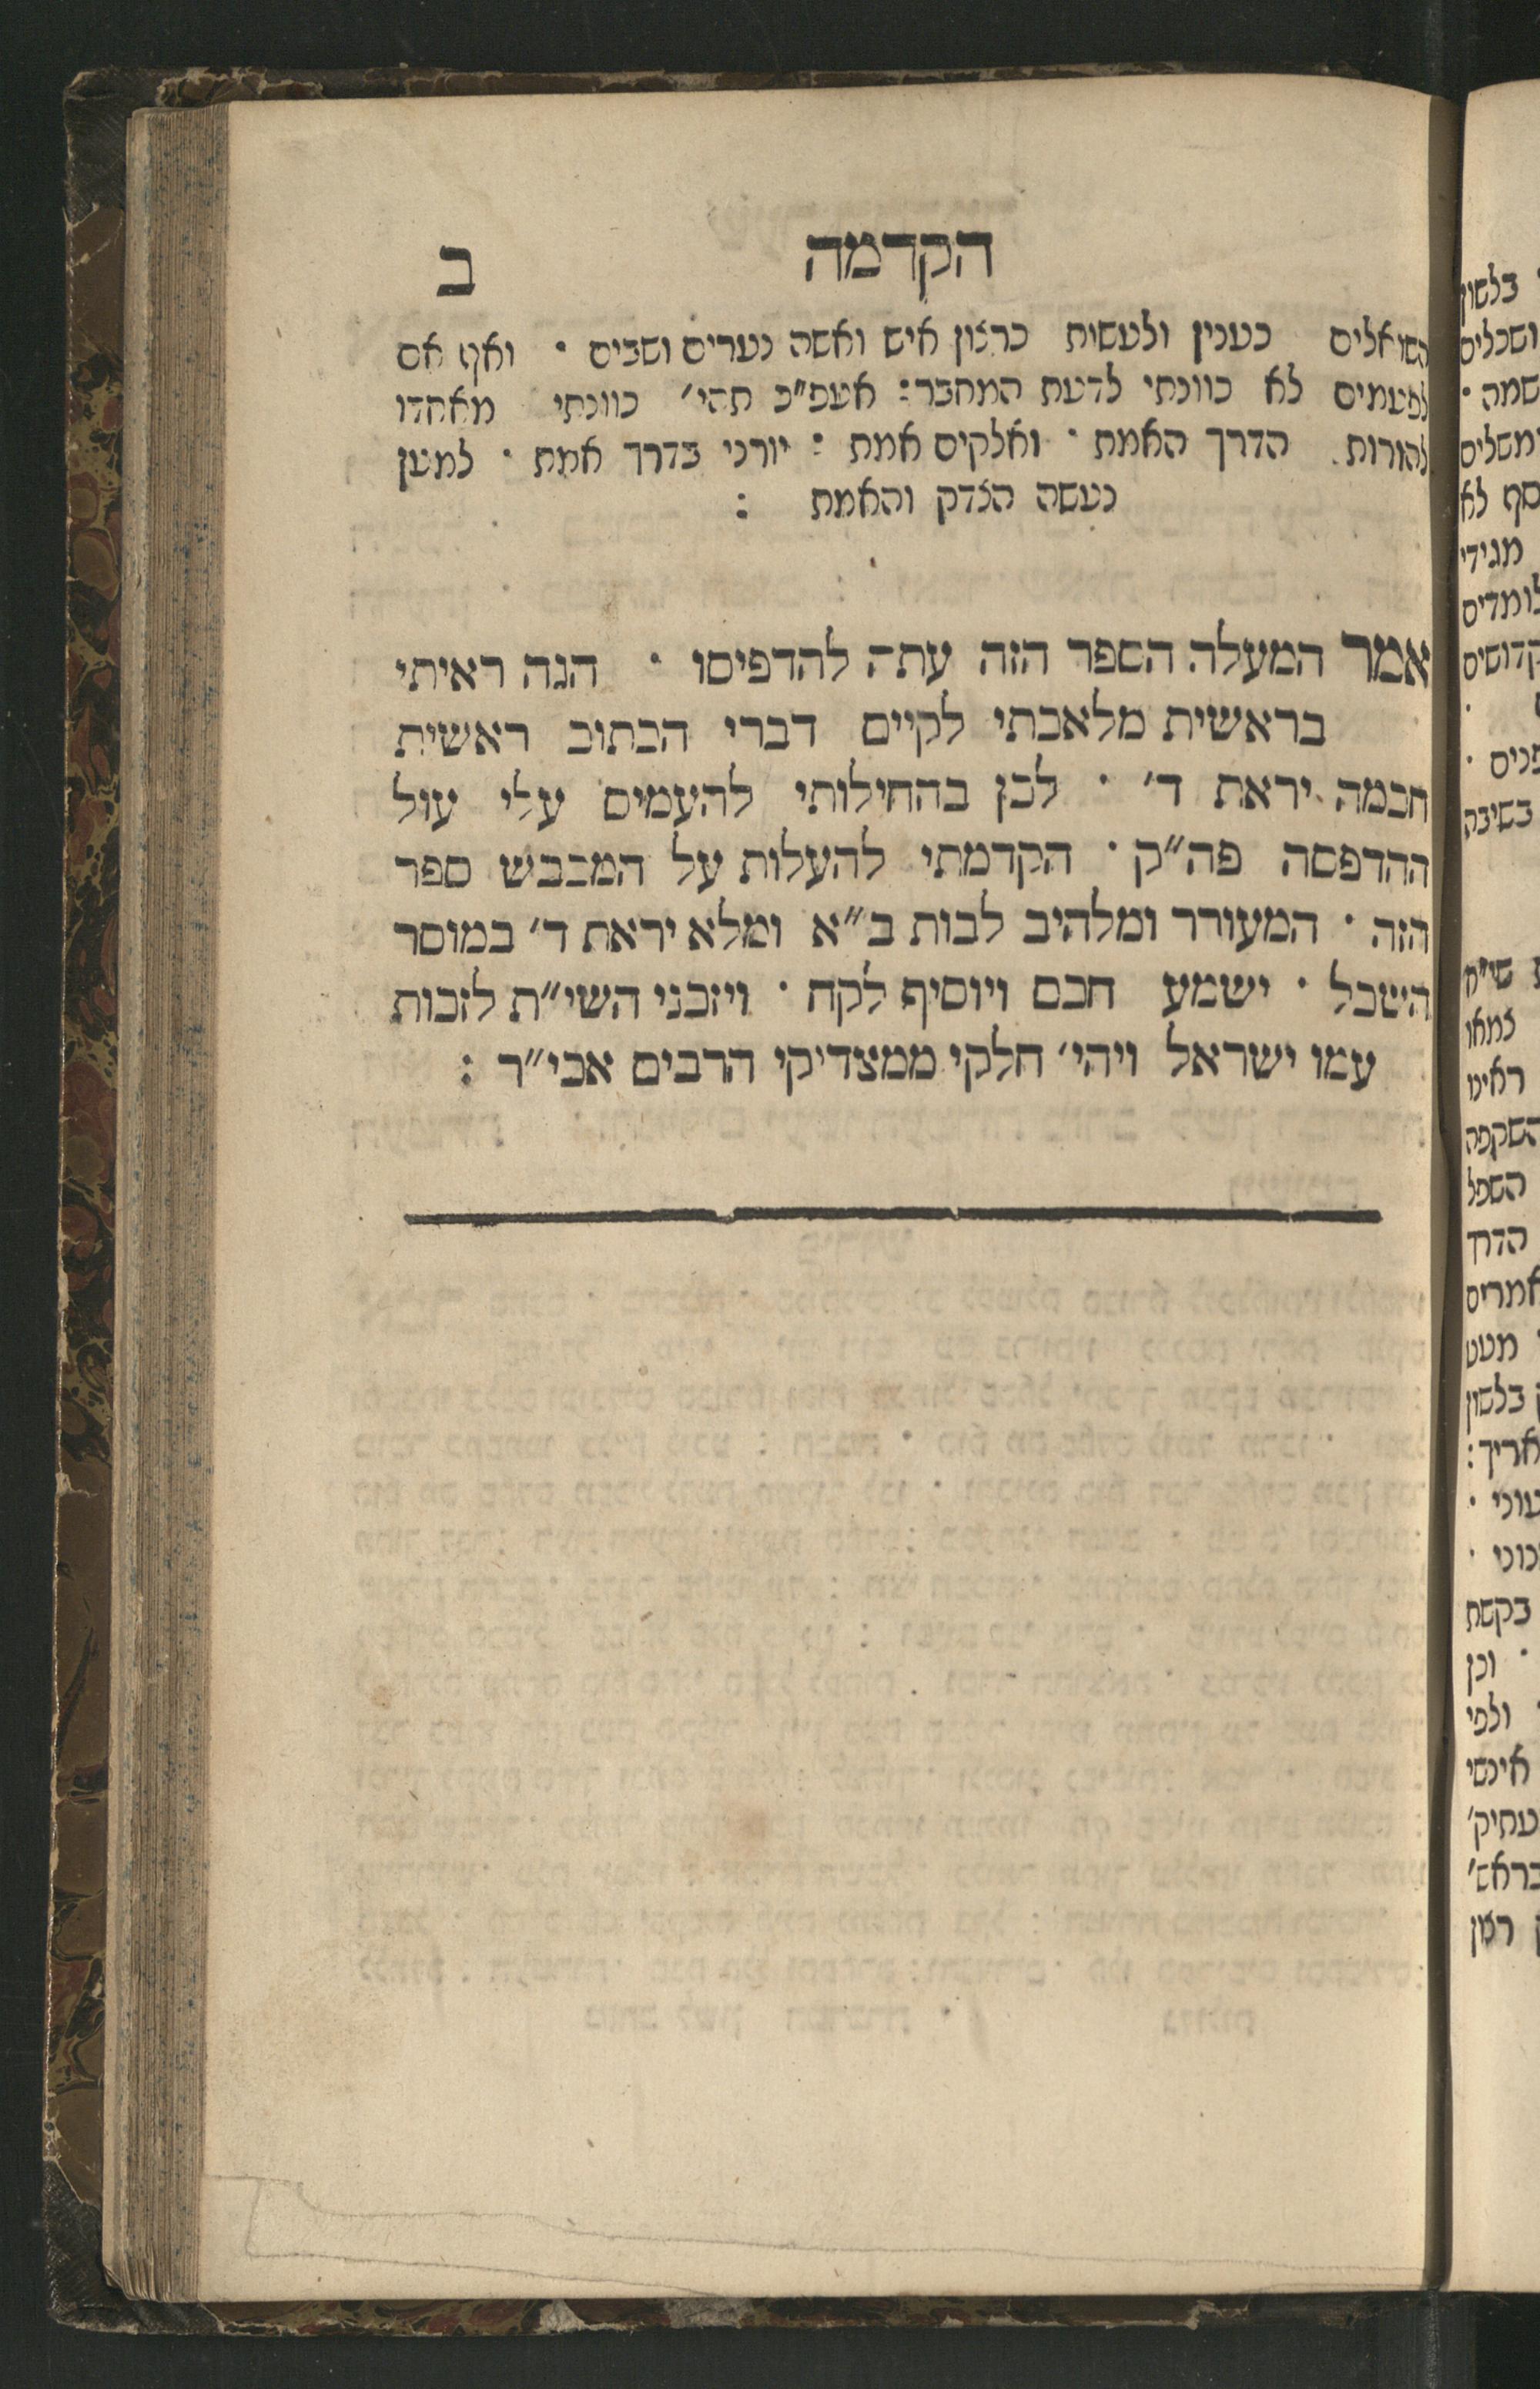 הקדמה ב
השואלים כענין ולעשות כרצון איש ואשה נערים ושבים · ואף אם
לפעמים לא כוונתי לדעת המחבר: אעפ״כ תהי׳ כוונתי מאתדו
להורות הדרך האמת · ואלקים אמת : יורני בדרך אמת · למען
נעשה הצדק והאמת :
אמר המעלה הספר הזה עתה להדפיסו · הנה ראיתי
בראשית מלאכתי לקיים דברי הכתוב ראשית
חכמה יראת ד׳ · לכן בהחילותי להעמיס עלי עול
ההדפסה פה״ק · הקדמתי להעלות על המכבש ספר
הזה · המעורר ומלהיב לבות ב״א ומלא יראת ד׳ במוסר
השכל · ישמע חכם ויוסיף לקח · ויזכני השי״ת לזכות
עמו ישראל ויהי׳ חלקי ממצדיקי הרבים אכי״ר :
בלשון
ושכלים
שמה ·
ומשלים
סף לא
מגידי
לומדים
קדושים
פנים ·
בשיבה
שי״ח
צמאו
ראינו
השקפה
השפל
הדרך
אמרים
מעט
בלשון
אריך :
עוני ·
כוני ·
בקשת
· וכן
ולפי
אינשי
עתיק׳
בראש׳
רצון